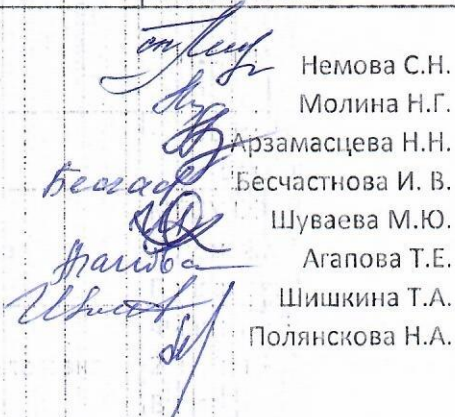 Немова С.Н.
Молина Н.Г.
Арзамасцева Н.Н.
Бесчастнова И. В.
Шуваева М.Ю.
Агапова Т.Е.
Шишкина Т.А.
Полянскова Н.А.